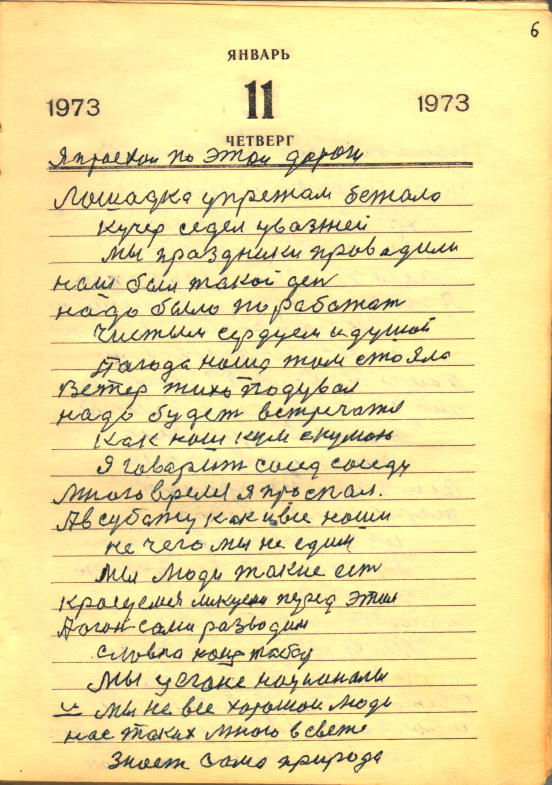 6
ЯНВАРЬ
1973 11 1973
ЧЕТВЕРГ
Я проехал по этой дороги
Лошадка упрежам бежала
Кучер седел уважней
Мы праздники провадили
нам был такой ден
надо было поработат
Чистым сердцем и душой
Пагода наша там стояла
Ветер тихо подувал
надо будет встречат
как наш кум с кумою
Я говарит сосед соседу
много время я проспал.
А в субату как и все наши
не чего мы не едим
Мы люди такие ест
красуемся ликуем перед этим
Аогон сами разводим
словно наш табор
Мы у
мы не все хорошои люди
нас таких много в свете
Знает сама природа